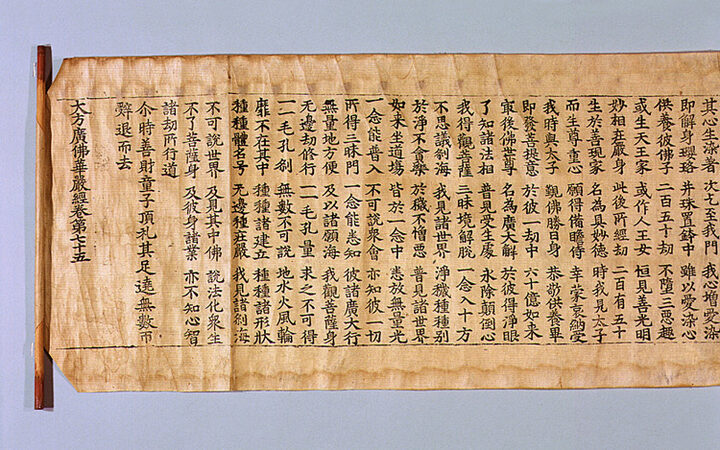 其心生染著 次乞至我門 我心增愛染
即解身瓔珞 并珠置鉢中 雖以愛染心
供養彼佛子 二百五十劫 不墮三惡趣
或生天王家 或作人王女 恒見善光明
妙相莊嚴身 此後所經劫 二百有五十
生於善現家 名為具妙德 時我見太子
而生尊重心 願得備瞻侍 幸蒙哀納受
我時與太子 覲佛勝日身 恭敬供養畢
即發菩提意 於彼一劫中 六十億如來
最後佛世尊 名為廣大解 於彼得淨眼
了知諸法相 普見受生處 永除顛倒心
我得觀菩薩 三昧境解脫 一念入十方
不思議剎海 我見諸世界 淨穢種種別
於淨不貪樂 於穢不憎惡 普見諸世界
如來坐道場 皆於一念中 悉放無量光
一念能普入 不可說眾會 亦知彼一切
所得三昧門 一念能悉知 彼諸廣大行
無量地方便 及以諸願海 我觀菩薩身
无邊劫修行 一一毛孔量 求之不可得
一一毛孔剎 無數不可說 地水火風輪
靡不在其中 種種諸建立 種種諸形狀
種種體名号 无邊種莊嚴 我見諸剎海
不可說世界 及見其中佛 說法化眾生
不了菩薩身 及彼身諸業 亦不知心智
諸劫所行道
尒時善財童子頂礼其足遶無數帀
辤退而去
大方廣佛華嚴經卷第七十五